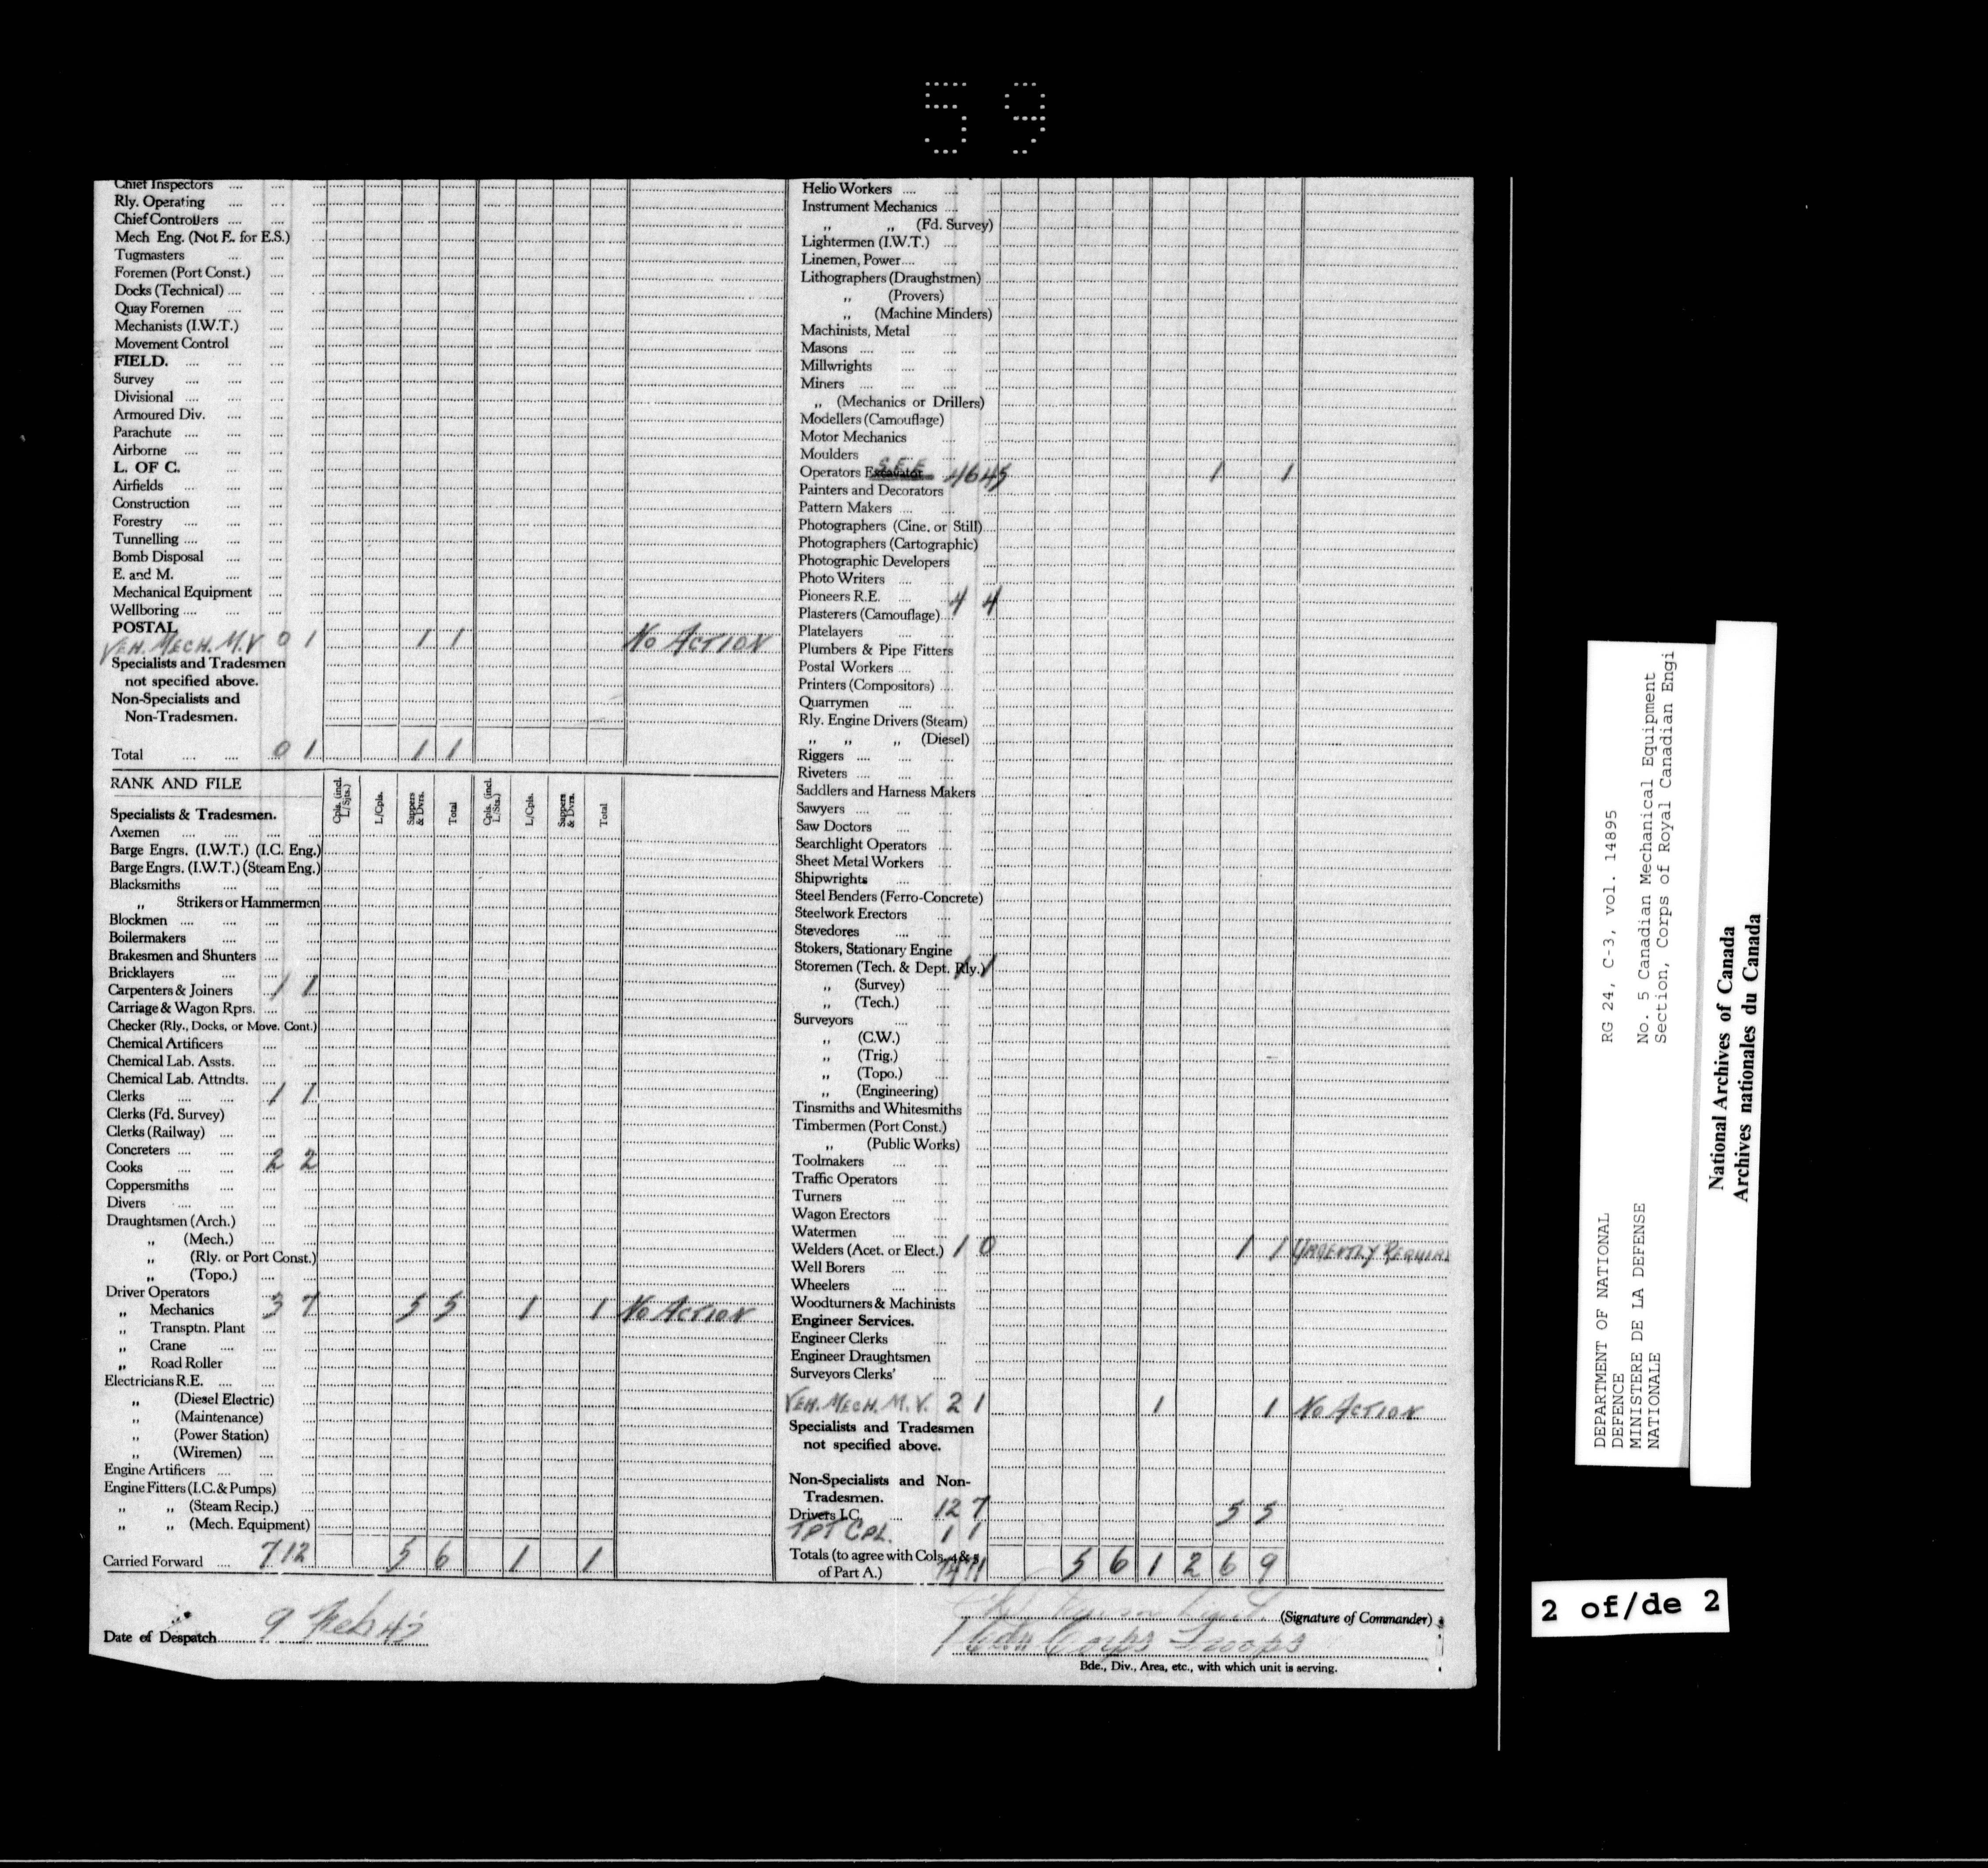 59
Chief Inspectors
Rly. Operating
Chief Controllers
Mech Eng. (Not E. for E.S.)
Tugmasters
Foremen (Port Const.)
Docks (Technical)
Quay Foremen
Mechanists (I.W.T.)
Movement Control
FIELD.
Survey
Divisional
Armoured Div.
Parachute
Airborne
L. OF C.
Airfields
Construction
Forestry
Tunnelling
Bomb Disposal
E. and M.
Mechanical Equipment
Wellboring
POSTAL
VEH. MECH. M.V 0 1 1 1 NO ACTION
Specialists and Tradesmen
not specified above.
Non-Specialists and
Non-Tradesmen.
Total 0 1 1 1
RANK AND FILE
Cpls. (incl. L/Sjts.) L/Cpls. Sappers & Dvrs. Total Cpls. (incl. L/Sts.) L/Cpls. Sappers & Dvrs. Total
Specialists & Tradesmen.
Axemen
Barge Engrs. (I.W.T.) (I.C. Eng.)
Barge Engrs. (I.W.T.) (Steam Eng.)
Blacksmiths
„ Strikers or Hammermen
Blockmen
Boilermakers
Brakesmen and Shunters
Bricklayers
Carpenters & Joiners 1 1
Carriage & Wagon Rprs.
Checker (Rly., Docks, or Move. Cont.)
Chemical Artificers
Chemical Lab. Assts.
Chemical Lab. Attndts.
Clerks 1 1
Clerks (Fd. Survey)
Clerks (Railway)
Concreters
Cooks 2 2
Coppersmiths
Divers
Draughtsmen (Arch.)
„ (Mech.)
„ (Rly. or Port Const.)
„ (Topo.)
Driver Operators
„ Mechanics 3 7 5 5 1 1 NO ACTION
„ Transptn. Plant
„ Crane
„ Road Roller
Electricians R.E.
„ (Diesel Electric)
„ (Maintenance)
„ (Power Station)
„ (Wiremen)
Engine Artificers
Engine Fitters (I.C. & Pumps)
„ „ (Steam Recip.)
„ „ (Mech. Equipment)
Carried Forward 7 12 5 6 1 1
Date of Despatch 9 Feb 43
Helio Workers
Instrument Mechanics
„ „ (Fd. Survey)
Lightermen (I.W.T.)
Linemen, Power
Lithographers (Draughstmen)
„ (Provers)
„ (Machine Minders)
Machinists, Metal
Masons
Millwrights
Miners
„ (Mechanics or Drillers)
Modellers (Camouflage)
Motor Mechanics
Moulders
Operators Excavator S.E.E. 46 45 1 1
Painters and Decorators
Pattern Makers
Photographers (Cine. or Still)
Photographers (Cartographic)
Photographic Developers
Photo Writers
Pioneers R.E. 4 4
Plasterers (Camouflage)
Platelayers
Plumbers & Pipe Fitters
Postal Workers
Printers (Compositors)
Quarrymen
Rly. Engine Drivers (Steam)
„ „ „ (Diesel)
Riggers
Riveters
Saddlers and Harness Makers
Sawyers
Saw Doctors
Searchlight Operators
Sheet Metal Workers
Shipwrights
Steel Benders (Ferro-Concrete)
Steelwork Erectors
Stevedores
Stokers, Stationary Engine
Storemen (Tech. & Dept. Rly.) 1 1
„ (Survey)
„ (Tech.)
Surveyors
„ (C.W.)
„ (Trig.)
„ (Topo.)
„ (Engineering)
Tinsmiths and Whitesmiths
Timbermen (Port Const.)
„ (Public Works)
Toolmakers
Traffic Operators
Turners
Wagon Erectors
Watermen
Welders (Acet. or Elect.) 1 0 1 1 URGENTLY REQUIRE
Well Borers
Wheelers
Woodturners & Machinists
Engineer Services.
Engineer Clerks
Engineer Draughtsmen
Surveyors Clerks'
VEH. MECH. M.V. 2 1 1 1 NO ACTION
Specialists and Tradesmen
not specified above.
Non-Specialists and Non-
Tradesmen.
Drivers I.C. 12 7 5 5
TPT CPL. 1 1
Totals (to agree with Cols. 4 & 5
of Part A.) 74 71 5 6 1 2 6 9
(Signature of Commander)
1 Cdn Corps Troops
Bde., Div., Area, etc., with which unit is serving.
DEPARTMENT OF NATIONAL
DEFENCE
MINISTERE DE LA DEFENSE
NATIONALE
RG 24, C-3, vol. 14895
No. 5 Canadian Mechanical Equipment
Section, Corps of Royal Canadian Engi
National Archives of Canada
Archives nationales du Canada
2 of/de 2